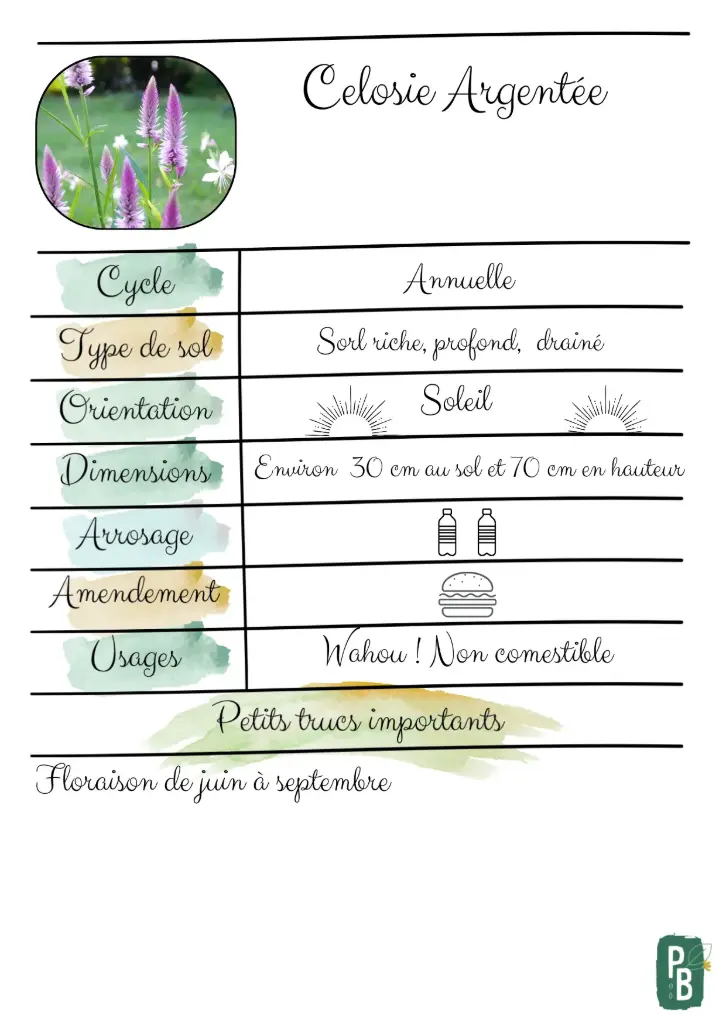 Celosie Argentée
Cycle
Annuelle
Type de sol
Sorl riche, profond, drainé
Orientation
Soleil
Dimensions
Environ 30 cm au sol et 70 cm en hauteur
Arrosage
Amendement
Usages
Wahou ! Non comestible
Petits trucs importants
Floraison de juin à septembre
P
B